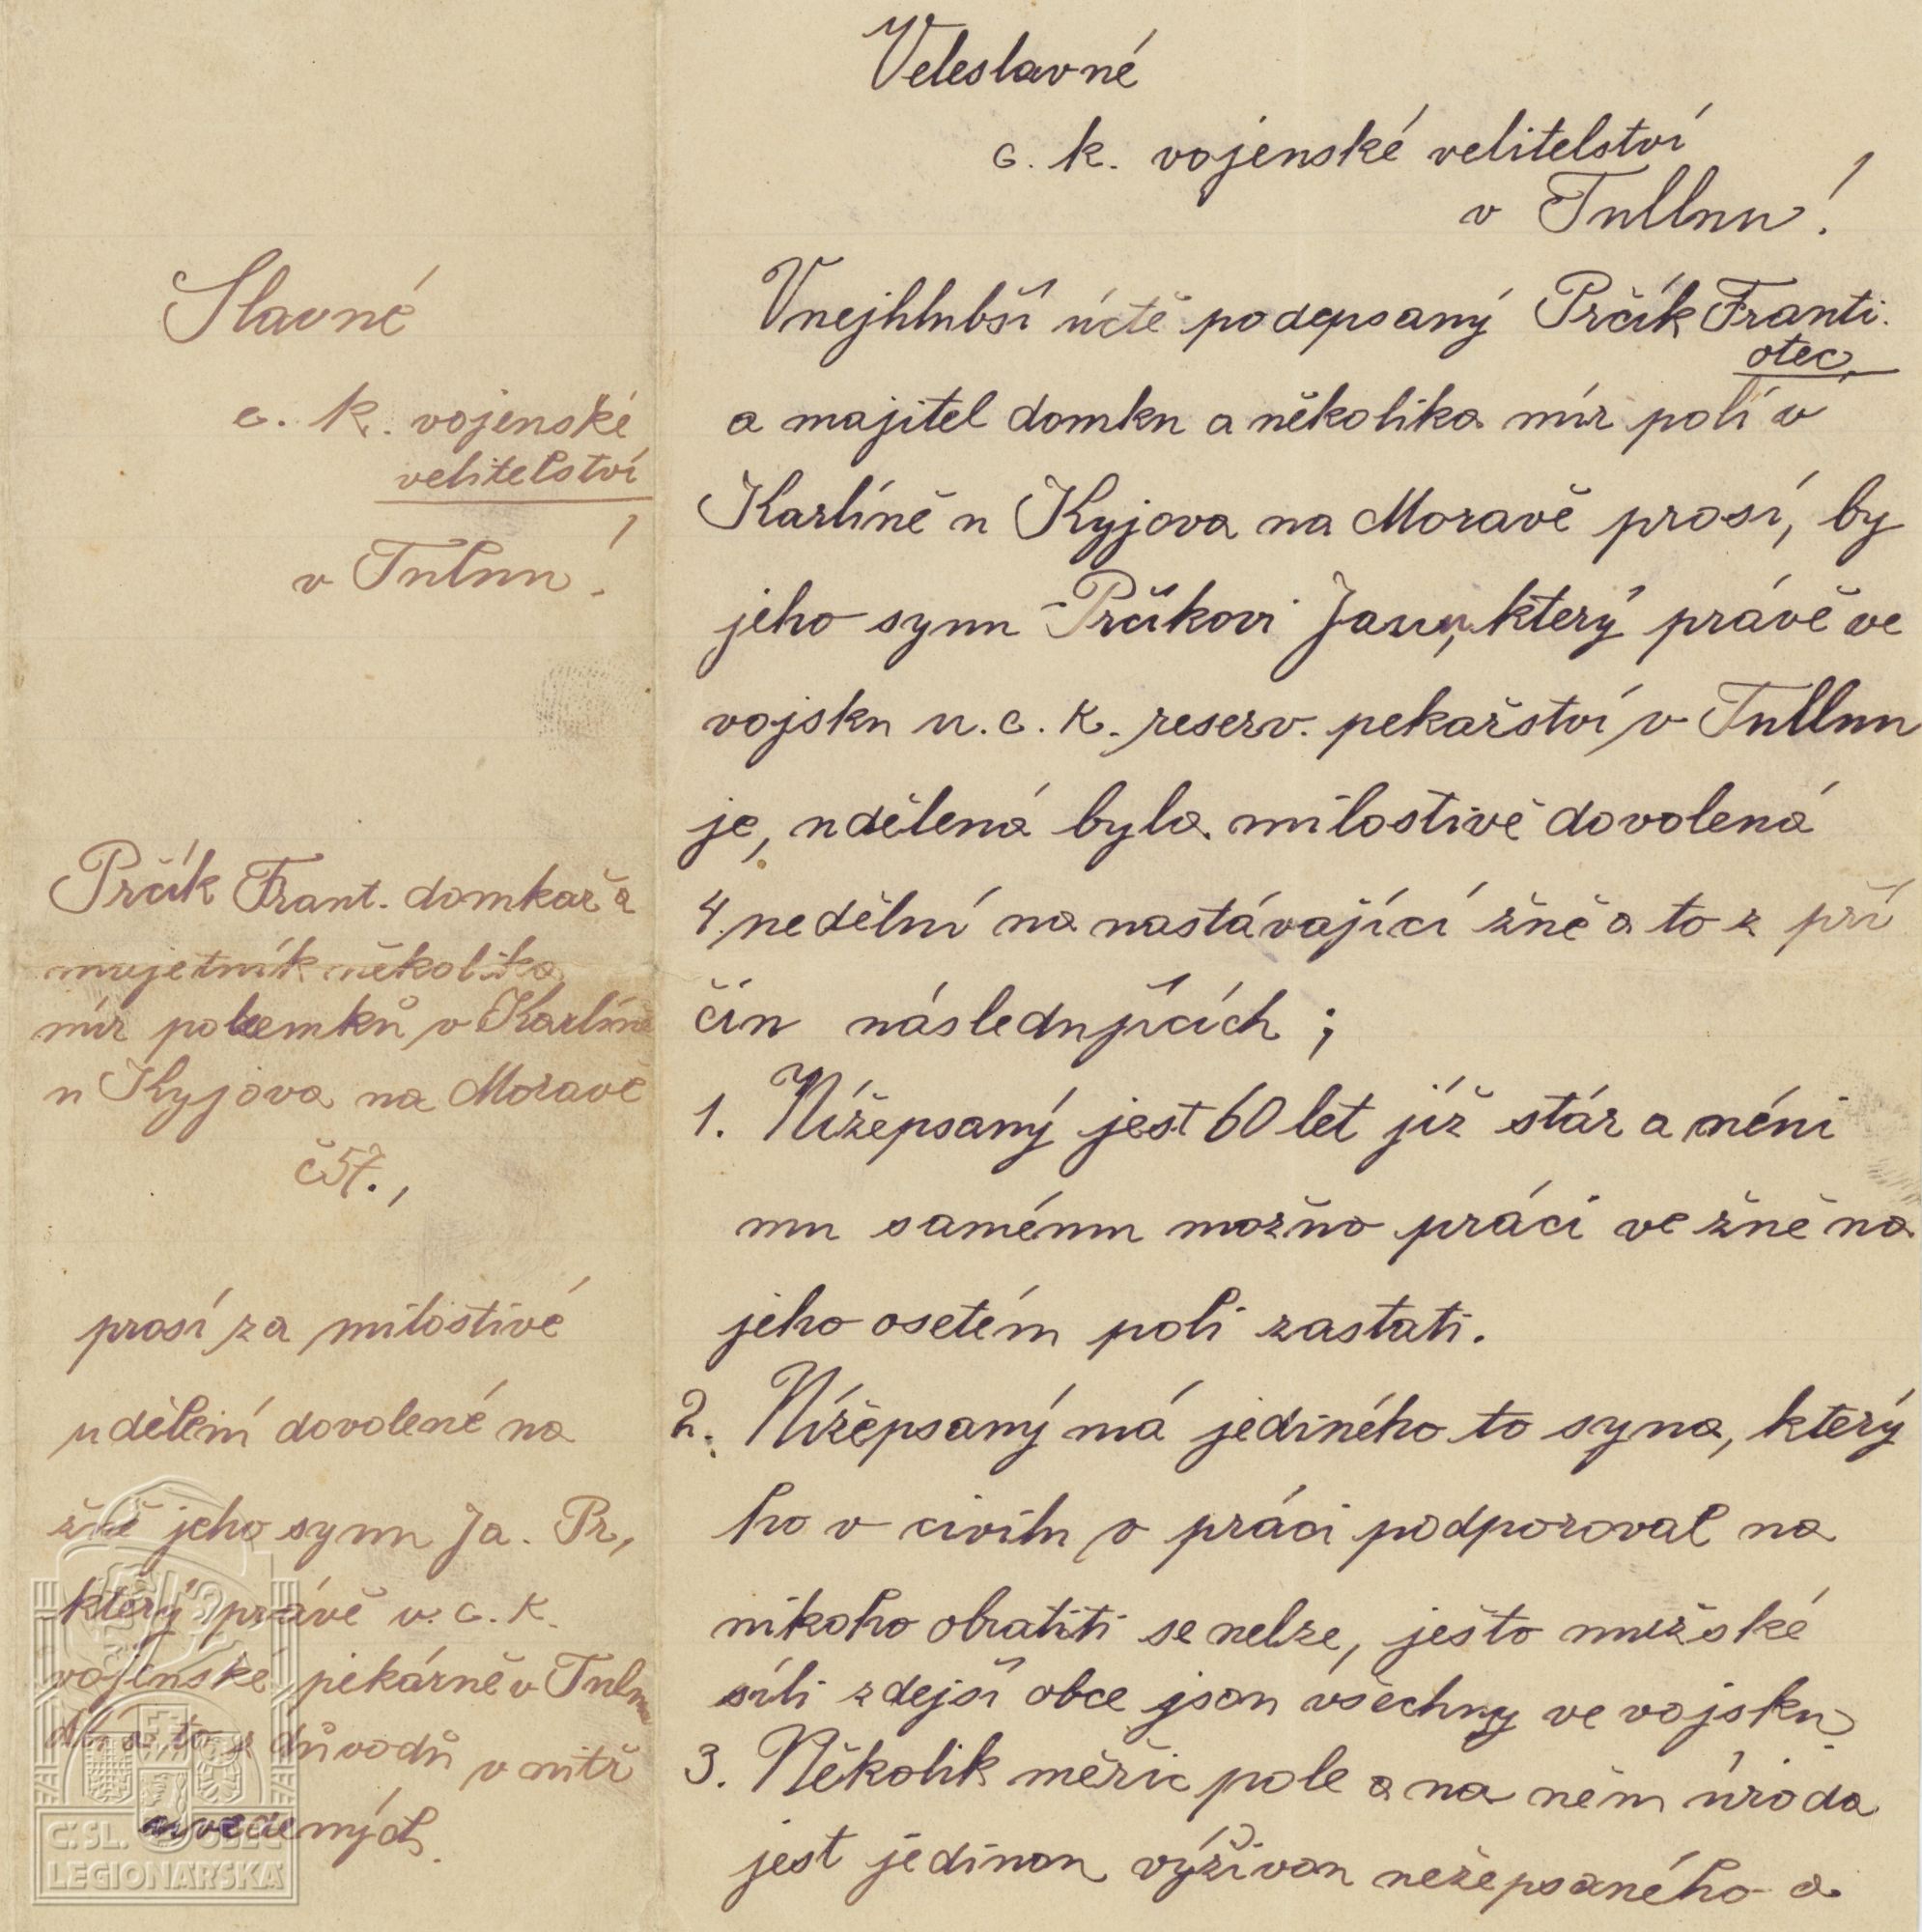 Slavné
c. k. vojenské
velitelství
v Tulnu!
Prčík Frant. domkař a
majetník několika
mír pozemků v Karlíně
u Kyjova na Moravě
č 57.,
prosí za milostivé
udělení dovolené na
žně jeho synu Ja. Pr,
který právě u. c. k.
vojenské pekárně v Tulnu
dlí a to z důvodů vnitř
uvedených.
Veleslavné
c. k. vojenské velitelství
v Tullnu!
Vnejhlubší úctě podepsaný Prčík Franti.
otec,
a majitel domku a několika mír polí v
Karlíně u Kyjova na Moravě prosí, by
jeho synu Prčíkovi Janu, který právě ve
vojsku u. c. k. reserv. pekařství v Tullnu
je, udělená byla milostivě dovolená
4 nedělní na nastávající žně a to z pří
čin následujících ;
1. Nížepsaný jest 60 let již stár a néni
mu samému možno práci ve žně na
jeho osetém poli zastati.
2. Nížepsaný má jediného to syna, který
ho v civilu v práci podporoval na
nikoho obratiti se nelze, ješto mužské
síli zdejší obce json všechny ve vojsku
3. Několik měřic pole a na něm úroda
jest jedinou výživou nežepsaného a
Č. SL. OBEC
LEGIONÁŘSKÁ